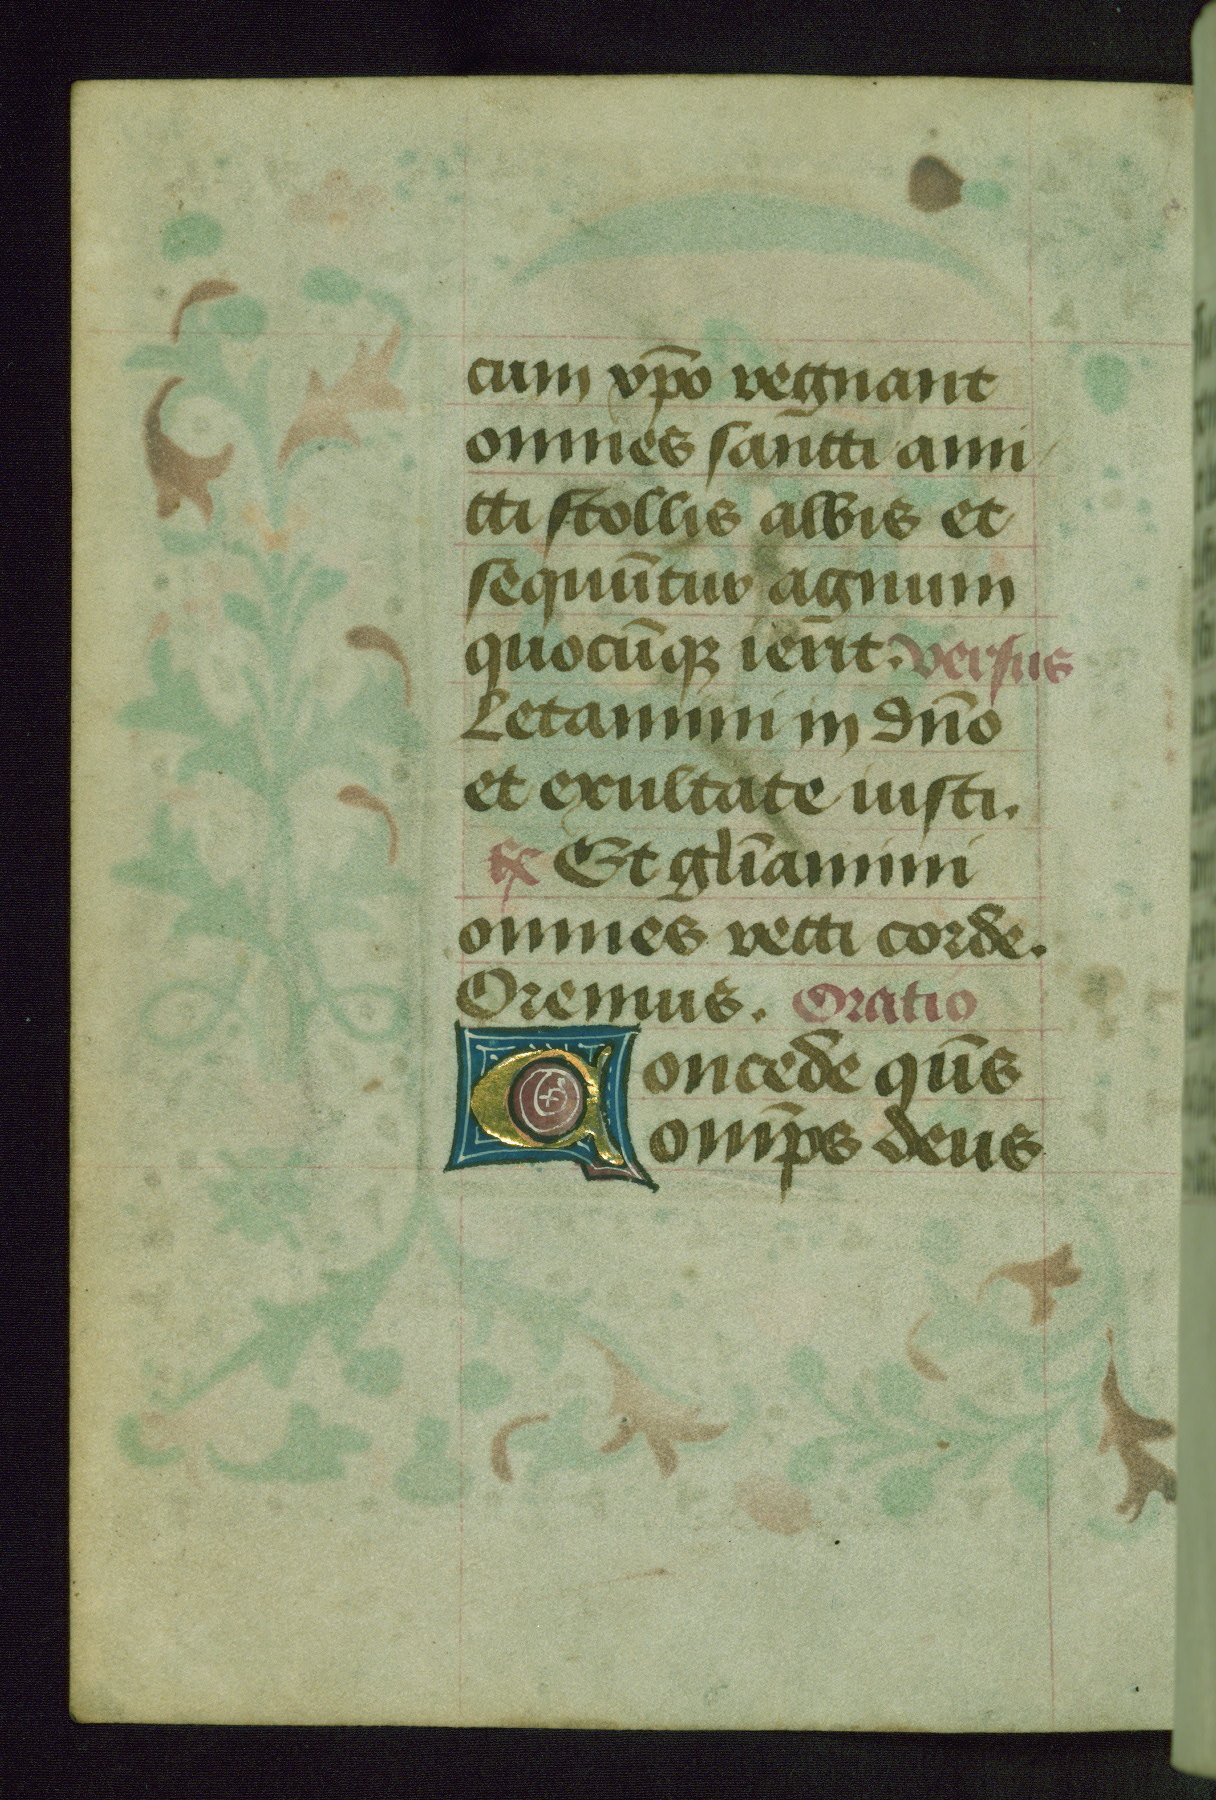 cum xp̄o regnant
omnes san̄cti ami
cti stollis albis et
sequūtur agnum
quocūqꝫ ier̄it. versus
Letamini in dn̄o
et exultate iusti.
℟ Et gl̄iamini
omnes recti corde.
Oremus. Oratio
Concede qūs
om̄ps deus